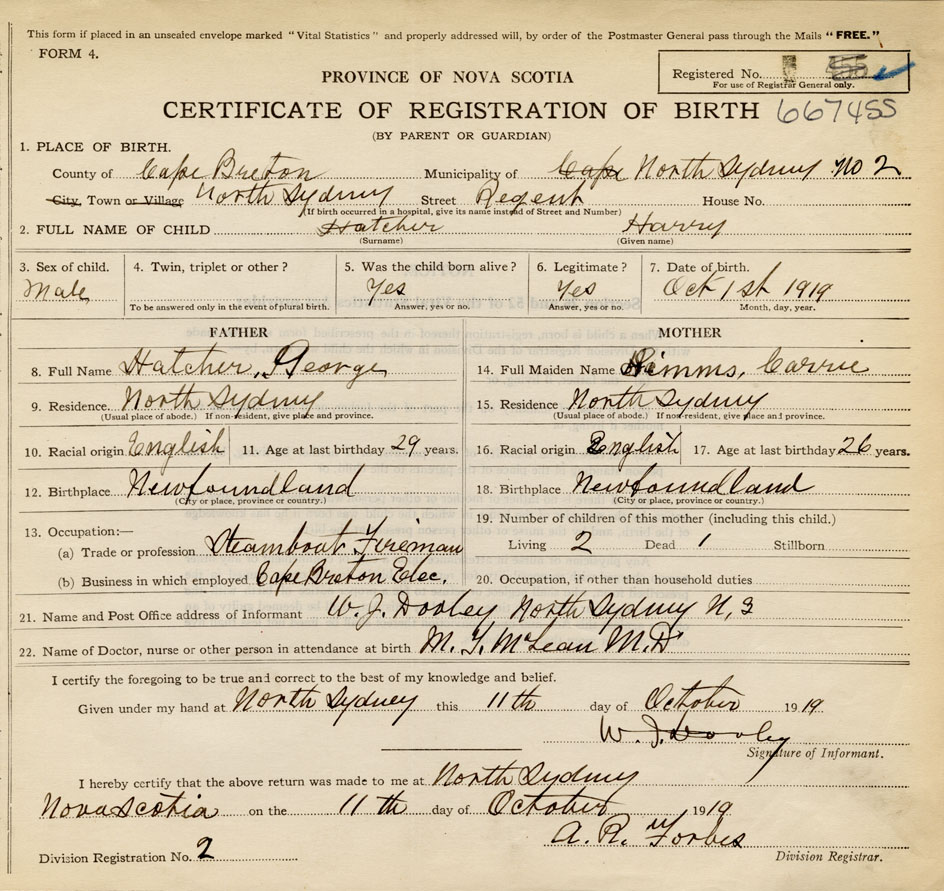 This form if placed in an unsealed envelope marked "Vital Statistics" and properly addressed will, by order of the Postmaster General pass through the Mails "FREE."
FORM 4.
Registered No.
For use of Registrar General only.
PROVINCE OF NOVA SCOTIA
CERTIFICATE OF REGISTRATION OF BIRTH 667455
(BY PARENT OR GUARDIAN)
1. PLACE OF BIRTH.
County of Cape Breton Municipality of Cape North Sydney No 2
City, Town or Village North Sydney Street Regent House No.
(If birth occurred in a hospital, give its name instead of Street and Number)
2. FULL NAME OF CHILD Hatcher Harry
(Surname) (Given name)
3. Sex of child. 4. Twin, triplet or other? 5. Was the child born alive? 6. Legitimate? 7. Date of birth.
Male Yes Yes Oct 1st 1919
To be answered only in the event of plural birth. Answer, yes or no. Answer, yes or no. Month, day, year.
FATHER MOTHER
8. Full Name Hatcher, George 14. Full Maiden Name Simms, Carrie
9. Residence North Sydney 15. Residence North Sydney
(Usual place of abode.) If non-resident, give place and province. (Usual place of abode.) If non-resident, give place and province.
10. Racial origin English 11. Age at last birthday 29 years. 16. Racial origin English 17. Age at last birthday 26 years.
12. Birthplace Newfoundland 18. Birthplace Newfoundland
(City or place, province or country.) (City or place, province or country.)
13. Occupation:— 19. Number of children of this mother (including this child.)
(a) Trade or profession Steamboat Fireman Living 2 Dead 1 Stillborn
(b) Business in which employed Cape Breton Elec. 20. Occupation, if other than household duties
21. Name and Post Office address of Informant W. J. Dooley North Sydney N, S
22. Name of Doctor, nurse or other person in attendance at birth M. T. McLean M.D
I certify the foregoing to be true and correct to the best of my knowledge and belief.
Given under my hand at North Sydney this 11th day of October 1919
W. J. Dooley
Signature of Informant.
I hereby certify that the above return was made to me at North Sydney
Nova Scotia on the 11th day of October 1919
A. R. Forbes
Division Registration No. 2 Division Registrar.